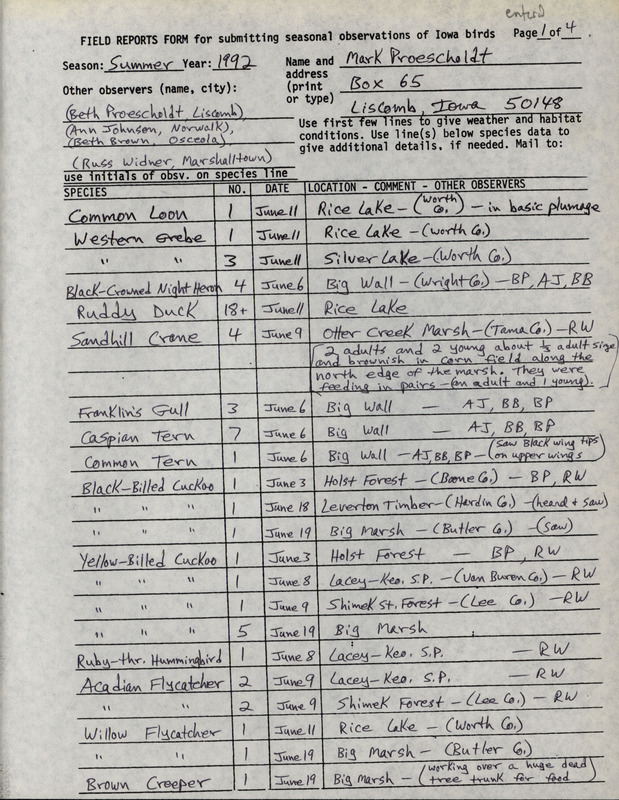 enter'd
FIELD REPORTS FORM for submitting seasonal observations of Iowa birds Page 1 of 4
Season: Summer Year: 1992
Name and address (print or type)
Mark Proescholdt
Box 65
Liscomb, Iowa 50148
Other observers (name, city):
(Beth Proescholdt, Liscomb)
(Ann Johnson, Norwalk),
(Beth Brown, Osceola),
(Russ Widner, Marshalltown)
use initials of obsv. on species line
Use first few lines to give weather and habitat
conditions. Use line(s) below species data to
give additional details. if needed. Mail to:
SPECIES NO. DATE LOCATION - COMMENT - OTHER OBSERVERS
Common Loon 1 June 11 Rice Lake - (Worth Co.) - in basic plumage
Western Grebe 1 June 11 Rice Lake - (Worth Co.)
" " 3 June 11 Silver Lake - (Worth Co.)
Black-Crowned Night Heron 4 June 6 Big Wall - (Wright Co.) - BP, AJ, BB
Ruddy Duck 18+ June 11 Rice Lake
Sandhill Crane 4 June 9 Otter Creek Marsh - (Tama Co.) - RW
(2 adults and 2 young about ⅓ adult size
and brownish in corn field along the
north edge of the marsh. They were
feeding in pairs - (an adult and 1 young).)
Franklin's Gull 3 June 6 Big Wall - AJ, BB, BP
Caspian Tern 7 June 6 Big Wall - AJ, BB, BP
Common Tern 1 June 6 Big Wall - AJ, BB, BP - (saw Black wing tips on upper wings)
Black-Billed Cuckoo 1 June 3 Holst Forest - (Boone Co.) - BP, RW
" " " 1 June 18 Leverton Timber - (Hardin Co.) - (heard + saw)
" " " 1 June 19 Big Marsh - (Butler Co.) - (saw)
Yellow-Billed Cuckoo 1 June 3 Holst Forest - BP, RW
" " " 1 June 8 Lacey-Keo. S.P. - (Van Buren Co.) - RW
" " " 1 June 9 Shimek St. Forest - (Lee Co.) - RW
" " " 5 June 19 Big Marsh
Ruby-thr. Hummingbird 1 June 8 Lacey-Keo. S.P. - RW
Acadian Flycatcher 2 June 9 Lacey-Keo. S.P. - RW
" " 2 June 9 Shimek Forest - (Lee Co.) - RW
Willow Flycatcher 1 June 11 Rice Lake - (Worth Co.)
" " 1 June 19 Big Marsh - (Butler Co.)
Brown Creeper 1 June 19 Big Marsh - (working over a huge dead tree trunk for food)